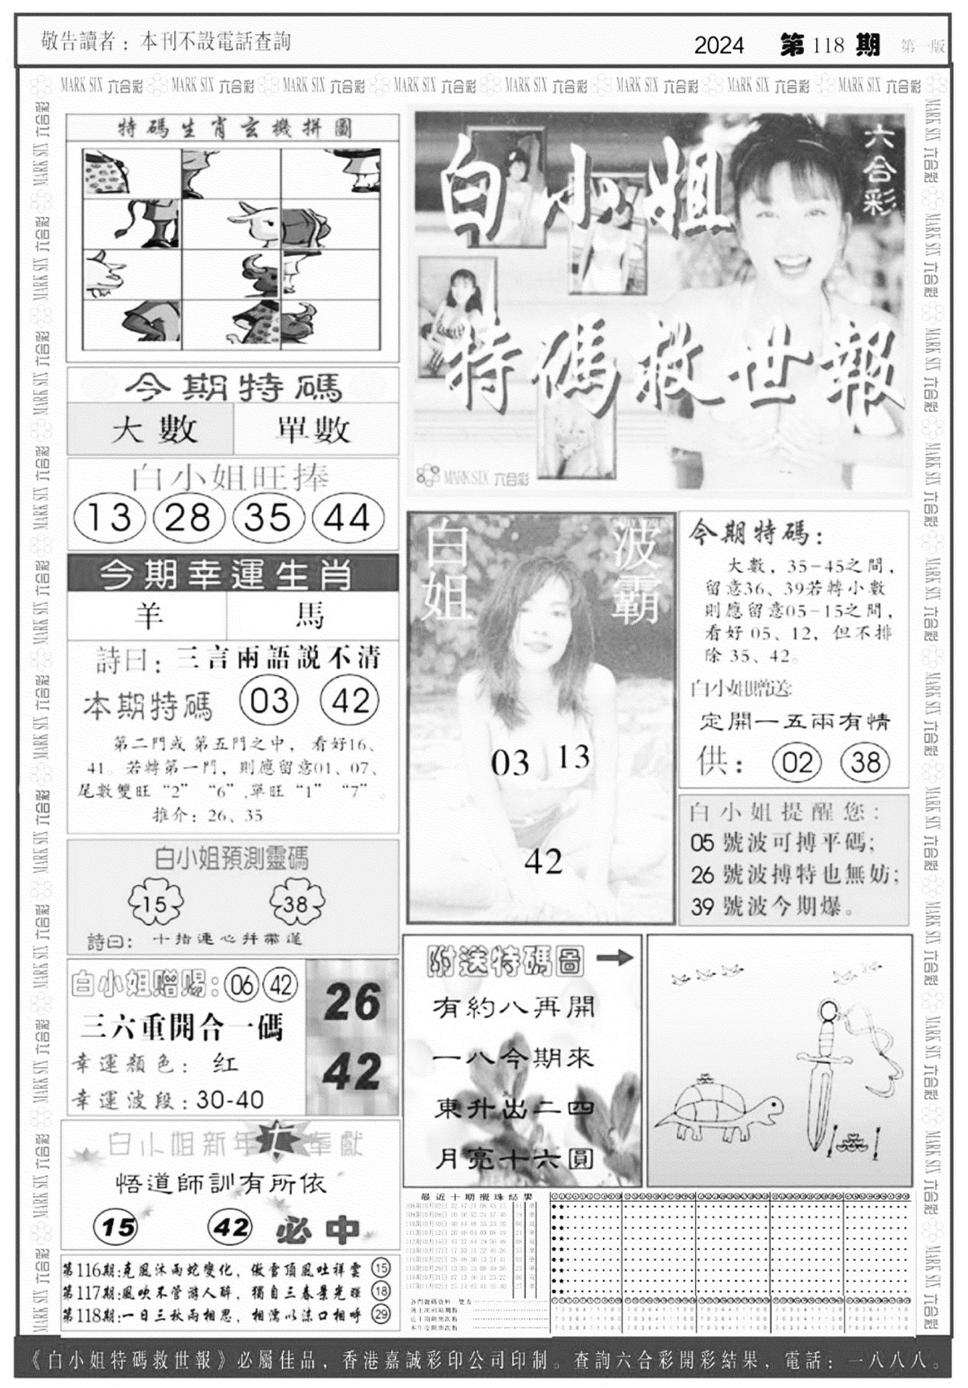 敬告讀者：本刊不設電話查詢
2024 第118期 第一版
MARK SIX 六合彩 MARK SIX 六合彩 MARK SIX 六合彩 MARK SIX 六合彩 MARK SIX 六合彩 MARK SIX 六合彩 MARK SIX 六合彩 MARK SIX 六合彩
特碼生肖玄機拼圖
今期特碼
大數 單數
白小姐旺捧
13 28 35 44
今期幸運生肖
羊 馬
詩曰：三言兩語説不清
本期特碼 03 42
第二門或第五門之中，看好16、
41。若轉第一門，則應留意01、07、
尾數雙旺“2” “6”,單旺“1” “7”。
推介：26、35
白小姐預測靈碼
15 38
詩曰：十指連心并蒂蓮
白小姐贈賜：06 42
三六重開合一碼
幸運顏色：红
幸運波段：30-40
26
42
白小姐新年奉獻
悟道師訓有所依
15 42 必中
第116期:克風沐雨蛇變化，傲雪頂風吐祥雲 15
第117期:風吹不管游人醉，獨自三春景光輝 18
第118期:一日三秋兩相思，相濡以沫口相呼 29
六合彩
白小姐
特碼救世報
MARK SIX 六合彩
白姐
波霸
03 13
42
今期特碼：
大數，35-45之間，
留意36、39若轉小數
則應留意05-15之間，
看好05、12，但不排
除35、42。
白小姐贈送
定開一五兩有情
供：02 38
白小姐提醒您：
05 號波可搏平碼；
26 號波搏特也無妨；
39 號波今期爆。
附送特碼圖
有約八再開
一八今期來
東升出二四
月亮十六圓
最近十期攪珠結果
《白小姐特碼救世報》必屬佳品，香港嘉誠彩印公司印制。查詢六合彩開彩結果，電話：一八八八。